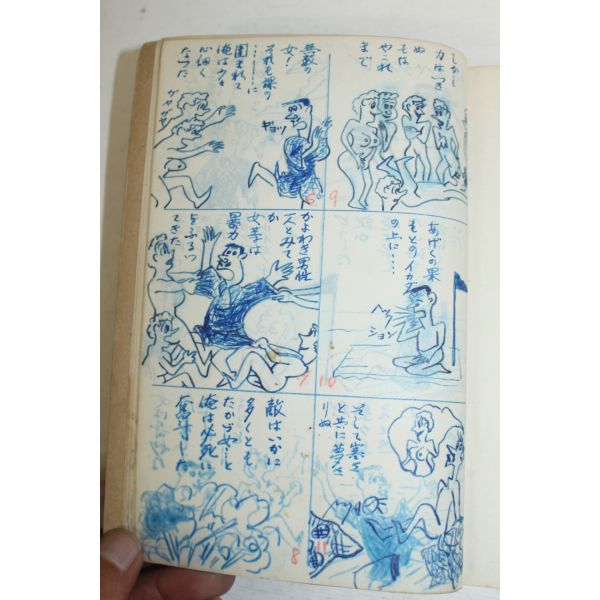 無数の
女!
それも裸の
…………に
囲まれて
俺は少々
心細く
なった
ギョッ
ゲャゲャ
6
かよわき男性
一人とみて
か
女等は
暴力
をふるっ
てきた
7
敵はいかに
多くとも
たかが女…と
俺は必死に
奮斗した
8
しかし
力はつき
ぬ
もは
やこれ
まで
9
あげくの果
もとのイカダ
の上に……
ヘックション
10
そして寒さ
と共に夢さ
りぬ
11